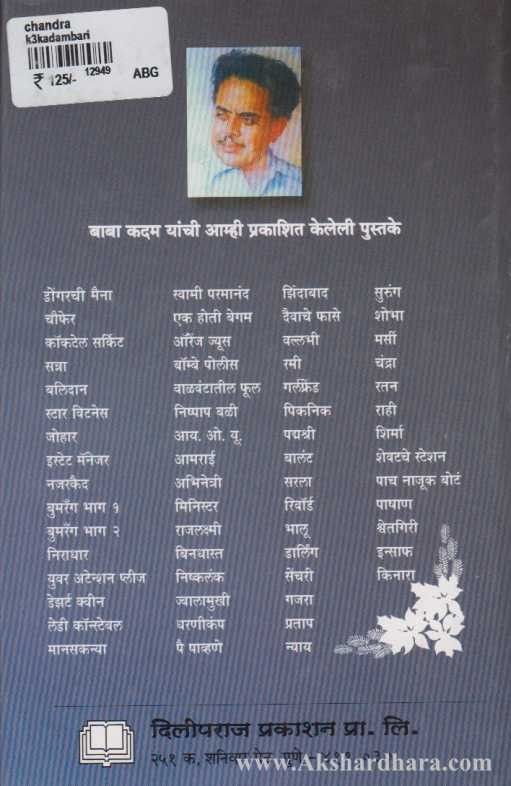 chandra
k3kadambari
₹ 125/- 12949 ABG
बाबा कदम यांची आम्ही प्रकाशित केलेली पुस्तके
डोंगरची मैना
चौफेर
कॉकटेल सर्किट
सत्रा
बलिदान
स्टार विटनेस
जोहार
इस्टेट मॅनेजर
नजरकैद
बुमरँग भाग १
बुमरँग भाग २
निराधार
युवर अटेन्शन प्लीज
डेझर्ट क्वीन
लेडी कॉन्स्टेबल
मानसकन्या
स्वामी परमानंद
एक होती बेगम
ऑरेंज ज्यूस
बॉम्बे पोलीस
वाळवंटातील फूल
निष्पाप बळी
आय. ओ. यू.
आमराई
अभिनेत्री
मिनिस्टर
राजलक्ष्मी
बिनधास्त
निष्कलंक
ज्वालामुखी
धरणीकंप
पै पाव्हणे
झिंदाबाद
दैवाचे फासे
वल्लभी
रमी
गर्लफ्रेंड
पिकनिक
पद्मश्री
बालंट
सरला
रिवॉर्ड
भालू
डार्लिंग
सेंचरी
गजरा
प्रताप
न्याय
सुरुंग
शोभा
मर्सी
चंद्रा
रतन
राही
शिर्मा
शेवटचे स्टेशन
पाच नाजूक बोटं
पाषाण
श्वेतगिरी
इन्साफ
किनारा
दिलीपराज प्रकाशन प्रा. लि.
२५१ क, शनिवार पेठ, पुणे
www.Akshardhara.com